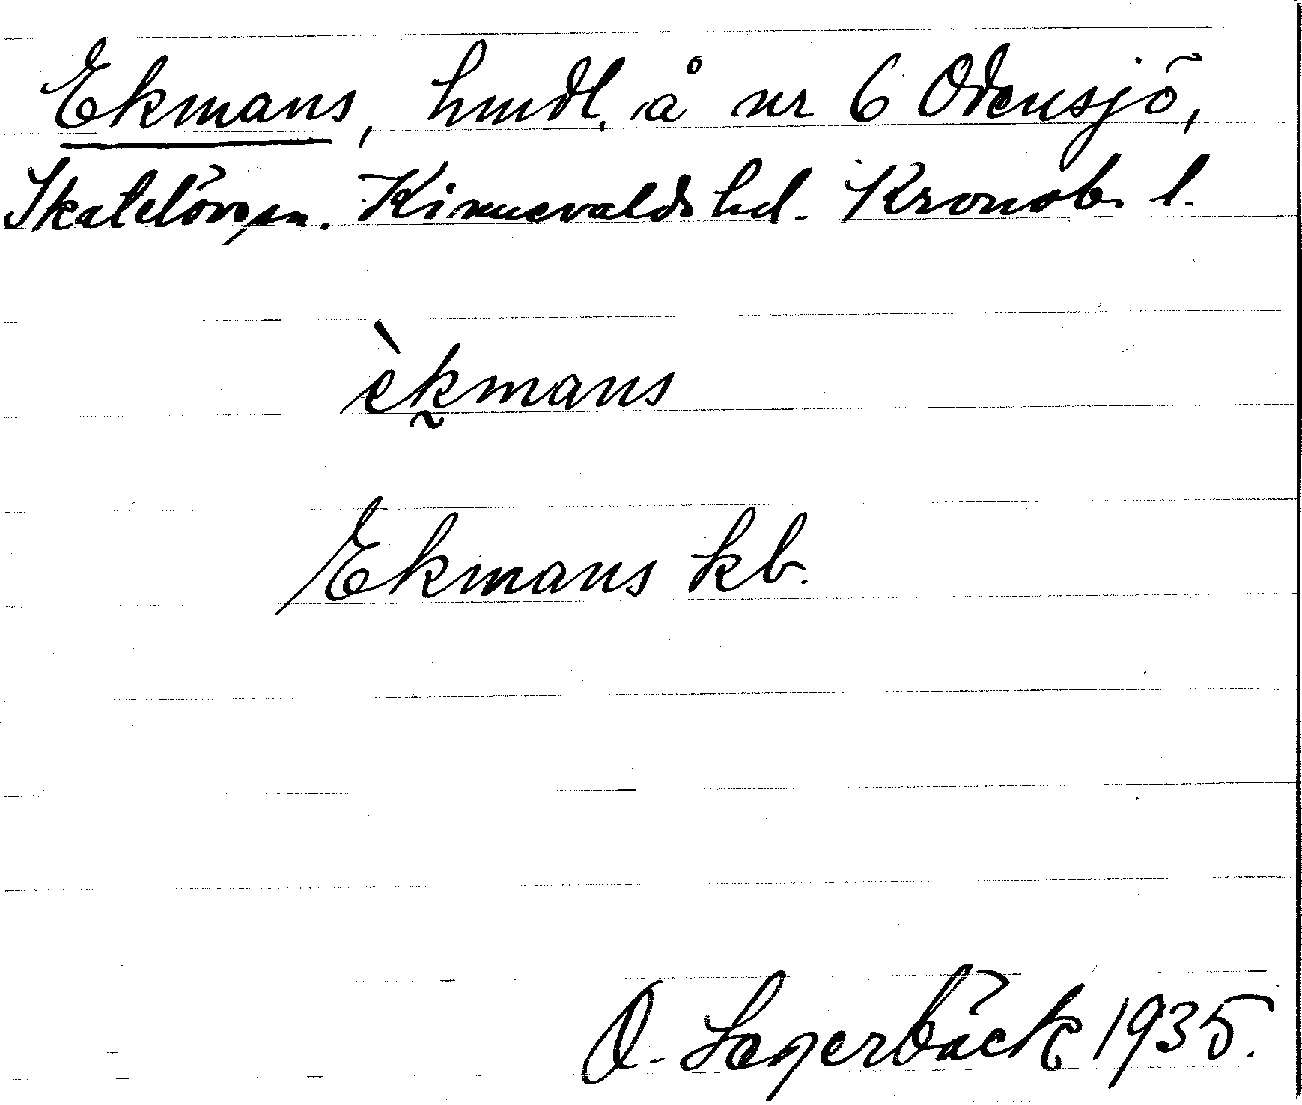 Ekmans, hmdl. å nr 6 Odensjö,
Skatelövs sn. Kinnevalds hd. Kronob. l.
èk̰mans
Ekmans kb.
O. Lagerbäck 1935.